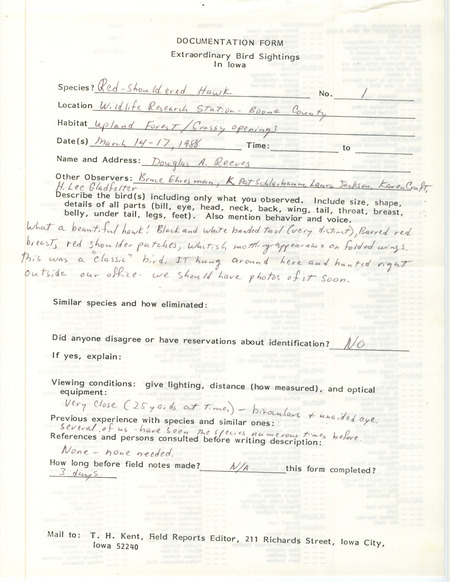 DOCUMENTATION FORM
Extraordinary Bird Sightings
In Iowa
Species? Red-shouldered Hawk No. 1
Location Wildlife Research Station - Boone County
Habitat upland Forest / Grassy openings
Date(s) March 14-17, 1988 Time: to
Name and Address: Douglas A. Reeves
Other Observers: Bruce Ehresman, K. Pat Schlarbaum, Laura Jackson, Karen Craft,
H. Lee Gladfelter
Describe the bird(s) including only what you observed. Include size, shape,
details of all parts (bill, eye, head, neck, back, wing, tail, throat, breast,
belly, under tail, legs, feet). Also mention behavior and voice.
What a beautiful hawk! Black and white banded tail (very distinct), Barred red
breast, red shoulder patches, whitish mottling appearance on folded wings.
this was a "classic" bird. IT hung around here and hunted right
outside our office - we should have photos of it soon.
Similar species and how eliminated:
Did anyone disagree or have reservations about identification? No
If yes, explain:
Viewing conditions: give lighting, distance (how measured), and optical
equipment:
Very close (25 yards at times) - binoculars + unaided eye.
Previous experience with species and similar ones:
several of us - have seen the species numerous times before.
References and persons consulted before writing description:
None - none needed.
How long before field notes made? N/A this form completed?
3 days
Mail to: T. H. Kent, Field Reports Editor, 211 Richards Street, Iowa City,
Iowa 52240